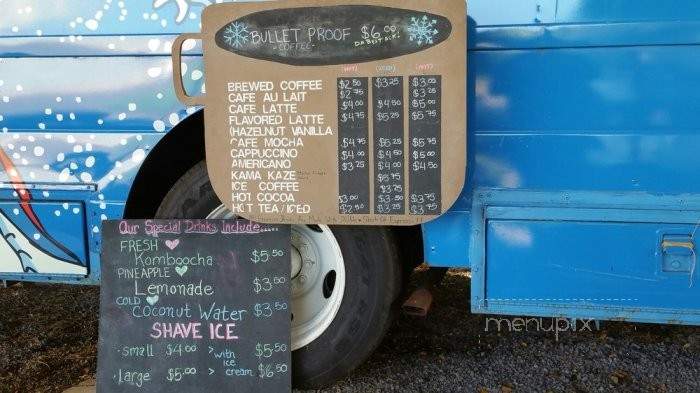 BULLET PROOF $6.00
- COFFEE -
BREWED COFFEE $2.50 $3.25 $3.00
CAFE AU LAIT $2.75 $3.25
CAFE LATTE $4.00 $4.50 $5.00
FLAVORED LATTE $4.75 $5.25 $5.75
(HAZELNUT VANILLA
CAFE MOCHA $4.75 $5.25 $5.75
CAPPUCCINO $4.00 $4.50 $5.00
AMERICANO $3.25 $4.00 $4.50
KAMA KAZE $5.75
ICE COFFEE $3.25
HOT COCOA $3.00 $3.50 $3.75
HOT TEA/ICED $2.50 $3.25 $3.75
Our Special Drinks Include.....
FRESH
Komboocha $5.50
PINEAPPLE
Lemonade $3.50
COLD
Coconut Water $3.50
SHAVE ICE
·small $4.00 >with ice $5.50
·Large $5.00 > cream $6.50
menupix